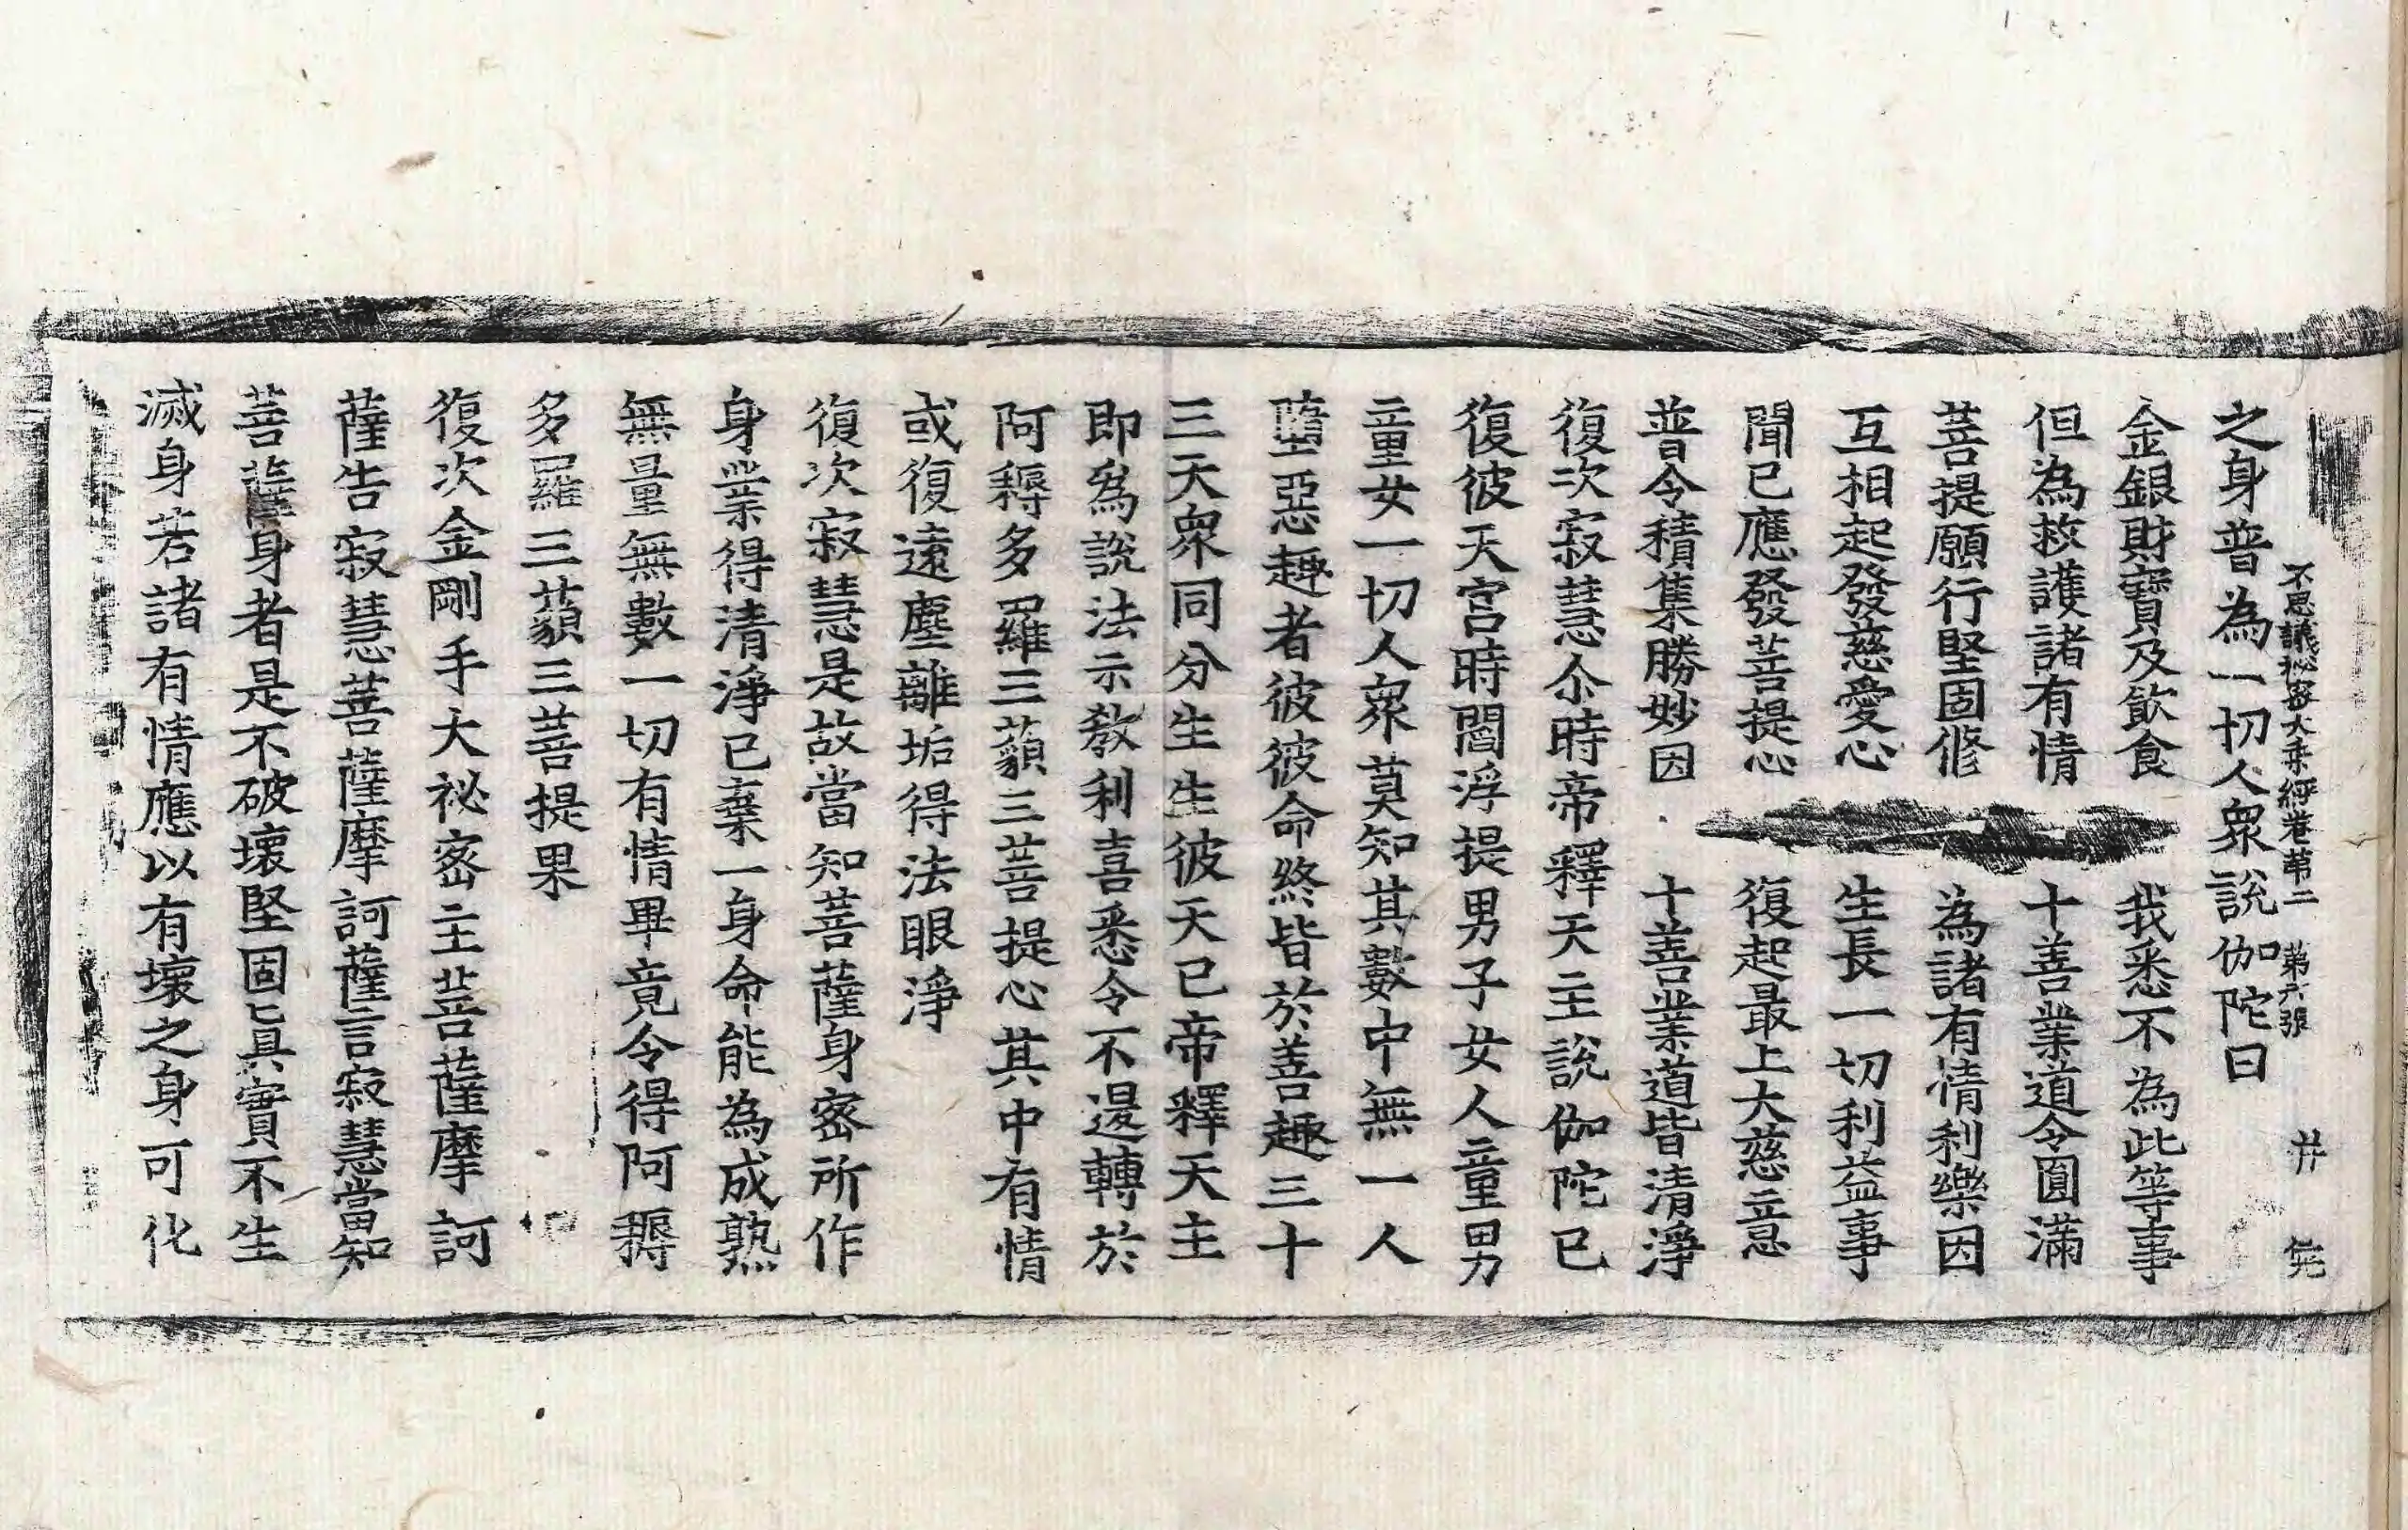 不思議祕密大乗經卷苐二　第六張　
之身普為一切人衆說伽陀曰
金銀財寶及飲食　我悉不為此等事
但為救護諸有情　十善業道令圓滿
菩提願行堅固修　為諸有情利樂因
互相起發慈愛心　生長一切利益事
聞已應發菩提心　復起最上大慈意
普令積集勝妙因　十善業道皆清淨
復次寂慧尒時帝釋天主說伽陀已
復彼天宫時閻浮提男子女人童男
童女一切人衆莫知其數中無一人
墮惡趣者彼彼命終皆於善趣三十
三天衆同分生生彼天已帝釋天主
即為說法示教利喜悉令不退轉於
阿耨多羅三藐三菩提心其中有情
或復遠塵離垢得法眼淨
復次寂慧是故當知菩薩身密所作
身業得清淨已棄一身命能為成熟
無量無數一切有情畢竟令得阿耨
多羅三藐三菩提果
復次金剛手大祕密主菩薩摩訶
薩告寂慧菩薩摩訶薩言寂慧當知
菩薩身者是不破壞堅固眞實不生
滅身若諸有情應以有壞之身可化